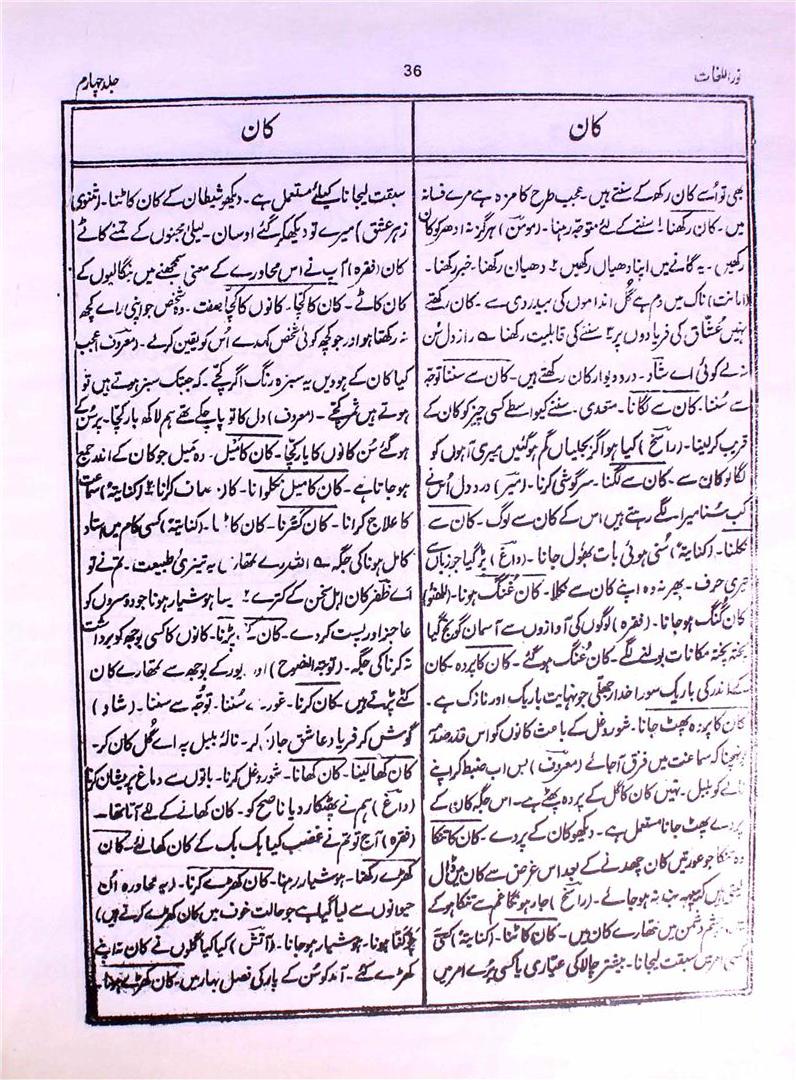 نور اللغات
36
جلد چہارم
کان
بھی تو اُسے کان رکھ کے سنتے ہیں۔ عجب طرح کا مزہ ہے مرے فسانہ
میں۔ کان رکھنا۔ ۱ سننے کے لئے متوجّہ رہنا۔ (مومنؔ) ہرگز نہ ادھر کو کان
رکھیں۔ یہ گانے میں اپنا دھیاں رکھیں ۲ دھیان رکھنا۔ خبر رکھنا۔
(امانت) ناک میں دم ہے گُل انداموں کی بیدردی سے۔ کان رکھتے
نہیں عُشّاق کی فریادوں پر ۳ سننے کی قابلیت رکھنا ؎ راز دل سُن
نہ لے کوئی اے شادؔ۔ در و دیوار کان رکھتے ہیں۔ کان سے سننا توجّہ
سے سُننا۔ کان سے لگانا۔ متعدی۔ سننے کیواسطے کسی چیز کو کان کے
قریب کر لینا۔ (راسخؔ) کیا ہوا گر بجلیاں گم ہوگئیں میری آہوں کو
لگا لو کان سے۔ کان سے لگنا۔ سرگوشی کرنا۔ (میرؔ) درد دل اُس نے
کب سُنا میرا۔ لگے رہتے ہیں اس کے کان سے لوگ۔ کان سے
نکلنا۔ (کنایۃً) سُنی ہوئی بات بھول جانا۔ (داغؔ) پڑ گیا جو زباں سے
تیری حرف۔ پھر نہ وہ اپنے کان سے نکلا۔ کان سُنگ ہونا۔
کان گُنگ ہو جانا۔ (فقرہ) لوگوں کی آوازوں سے آسمان گونج گیا
پختہ پختہ مکانات بولنے لگے۔ کان گُنگ ہوگئے۔ کان کا پردہ۔ کان
کے اندر کی باریک سوراخدار جھلّی جو نہایت باریک اور نازک ہے۔
کان کا پردہ پھٹ جانا۔ شور و غل کے باعث کانوں کو اس قدر صدمہ
پہنچنا کہ سماعت میں فرق آجائے (معروفؔ) بس اب ضبط کر اپنے
نالے کو بلبل۔ نہیں کان کا گل کے پردہ پھٹے ہے۔ اس جگہ کان کے
پردے پھٹ جانا مستعمل ہے۔ دیکھو کان کے پردے۔ کان کا تنکا
وہ تنکا جو عورتیں کان چھدنے کے بعد اس غرض سے کان میں ڈال
لیتی ہیں کہ چھید بند نہ ہو جائے۔ (راسخؔ) جار ہونگا غم سے تنکا ہو کے
چشم دشمن میں تمھارے کان میں۔ کان کاٹنا۔ (کنایۃً) کسی
کسی امر میں سبقت لیجانا۔ بیشتر چالاکی عیّاری یا کسی بُرے امر میں
کان
سبقت لیجانا کیلئے مستعمل ہے۔ دیکھو شیطان کے کان کاٹنا۔ (مثنوی
زہر عشق) میرے تو دیکھ کر گئے اوسان۔ لیلیٰ مجنوں کے تمنے کاٹے
کان (فقرہ) آپ نے اس محاورے کے معنی سمجھنے میں بنگالیوں کے
کان کاٹے۔ کان کا کچّا۔ کانوں کا کچّا۔ صفت۔ وہ شخص جو اپنی رائے کچھ
نہ رکھتا ہو اور جو کچھ کوئی شخص کہدے اُس کو یقین کر لے۔ (معروفؔ) عجب
کیا کان کے ہو ویں یہ سبزہ رنگ اگر کچّے۔ کہ جبتک سبز ہوتے ہیں تو
ہوتے ہیں ثمر کچّے۔ (معروف) دل کا تو پا چکے تھے ہم لاکھ بار کچّا۔ پر سُن کے
ہوگئے سُن کانوں کا یار کچّا۔ کان کا میل۔ وہ میل جو کان کے اندر جمع
ہو جاتا ہے۔ کان کا میل نکلوانا۔ کان صاف کرانا ۲ (کنایۃً) سماعت
کا علاج کرانا۔ کان کترنا۔ کان کاٹنا۔ (کنایۃً) کسی کام میں استاد
کامل ہونا کی جگہ ؎ اللہ رے تمھاری یہ تیزیٔ طبیعت۔ تم نے تو
اے ظفرؔ کان اہل سخن کے کترے ۲ ایسا ہوشیار ہونا جو دوسروں کو
عاجز اور پست کر دے۔ کان کٹے پڑنا۔ کانوں کا کسی بوجھ کو برداشت
نہ کرنا کی جگہ۔ (توبۃ النصوح) اور زیور کے بوجھ سے تمھارے کان
کٹے پڑتے ہیں۔ کان کرنا۔ غور سے سُننا۔ توجّہ سے سننا۔ (شادؔ)
گوش کر فریاد عاشق جان کر۔ نالۂ بلبل پہ اے گُل کان کر۔
کان کھا لینا۔ کان کھانا۔ شور و غل کرنا۔ باتوں سے دماغ پریشان کرنا
(داغؔ) ہم نے پھٹکار دیا ناصح کو۔ کان کھانے کے لئے آتا تھا۔
(فقرہ) آج تو تم نے غضب کیا بک بک کے کان کھا لئے۔ کان
کھڑے رکھنا۔ ہوشیار رہنا۔ کان کھڑے کرنا۔ (یہ محاورہ ان
حیوانوں سے لیا گیا ہے جو حالت خوف میں کان کھڑے کرتے ہیں)
چوکنّا ہونا۔ ہوشیار ہو جانا۔ (آتشؔ) کیا کیا گلوں نے کان نہ اپنے
کھڑے کئے۔ آمد کو سُن کے یار کی فصل بہار میں۔ کان کھڑے ہونا۔